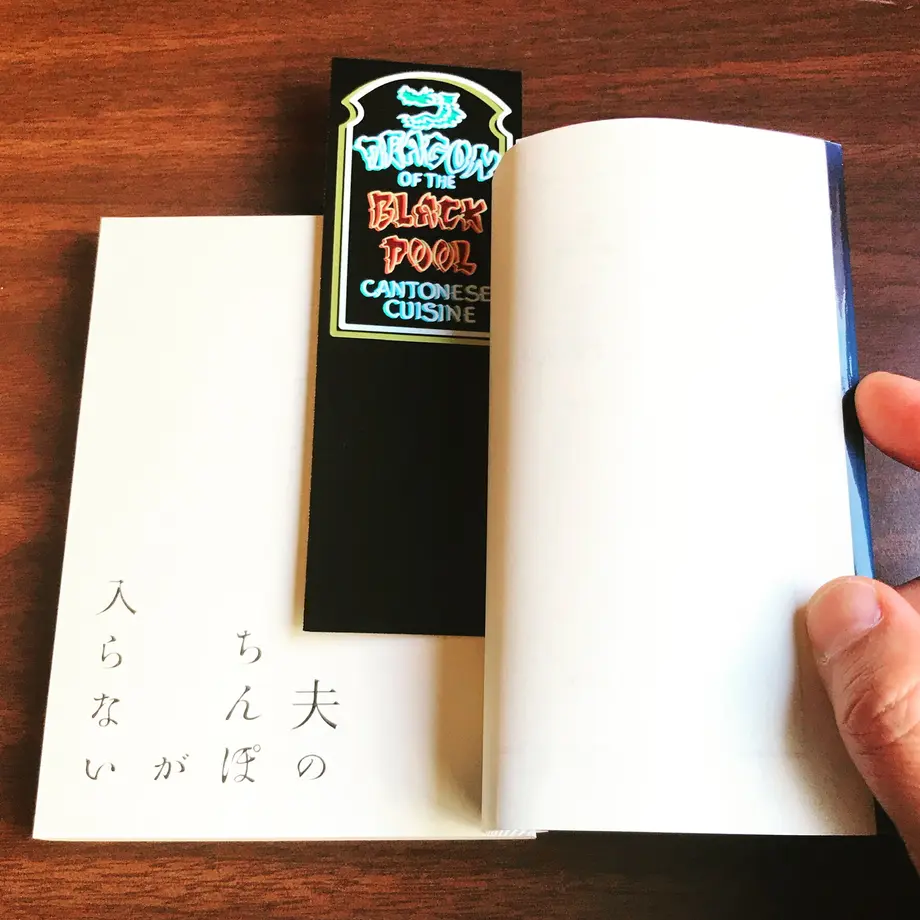 DRAGON
OF THE
BLACK
POOL
CANTONESE
CUISINE
夫の
ちんぽ
が
入らない